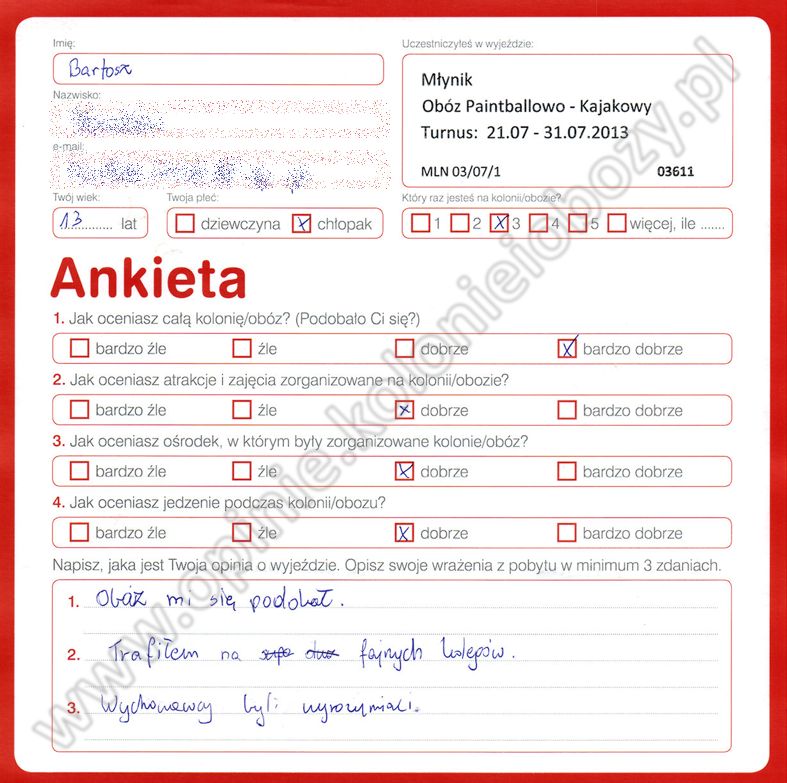 Imię:
Uczestniczyłeś w wyjeździe:
Bartosz
Młynik
Obóz Paintballowo - Kajakowy
Turnus: 21.07 - 31.07.2013
MLN 03/07/1 03611
Nazwisko:
e-mail:
Twój wiek:
Twoja płeć:
Który raz jesteś na kolonii/obozie?
13 lat
dziewczyna x chłopak
1 2 x 3 4 5 więcej, ile .......
Ankieta
1. Jak oceniasz całą kolonię/obóz? (Podobało Ci się?)
bardzo źle źle dobrze x bardzo dobrze
2. Jak oceniasz atrakcje i zajęcia zorganizowane na kolonii/obozie?
bardzo źle źle x dobrze bardzo dobrze
3. Jak oceniasz ośrodek, w którym były zorganizowane kolonie/obóz?
bardzo źle źle x dobrze bardzo dobrze
4. Jak oceniasz jedzenie podczas kolonii/obozu?
bardzo źle źle x dobrze bardzo dobrze
Napisz, jaka jest Twoja opinia o wyjeździe. Opisz swoje wrażenia z pobytu w minimum 3 zdaniach.
1. Obóz mi się podobał.
2. Trafiłem na fajnych kolegów.
3. Wychowawcy byli wyrozumiali.
www.opinie.kolonieiobozy.pl